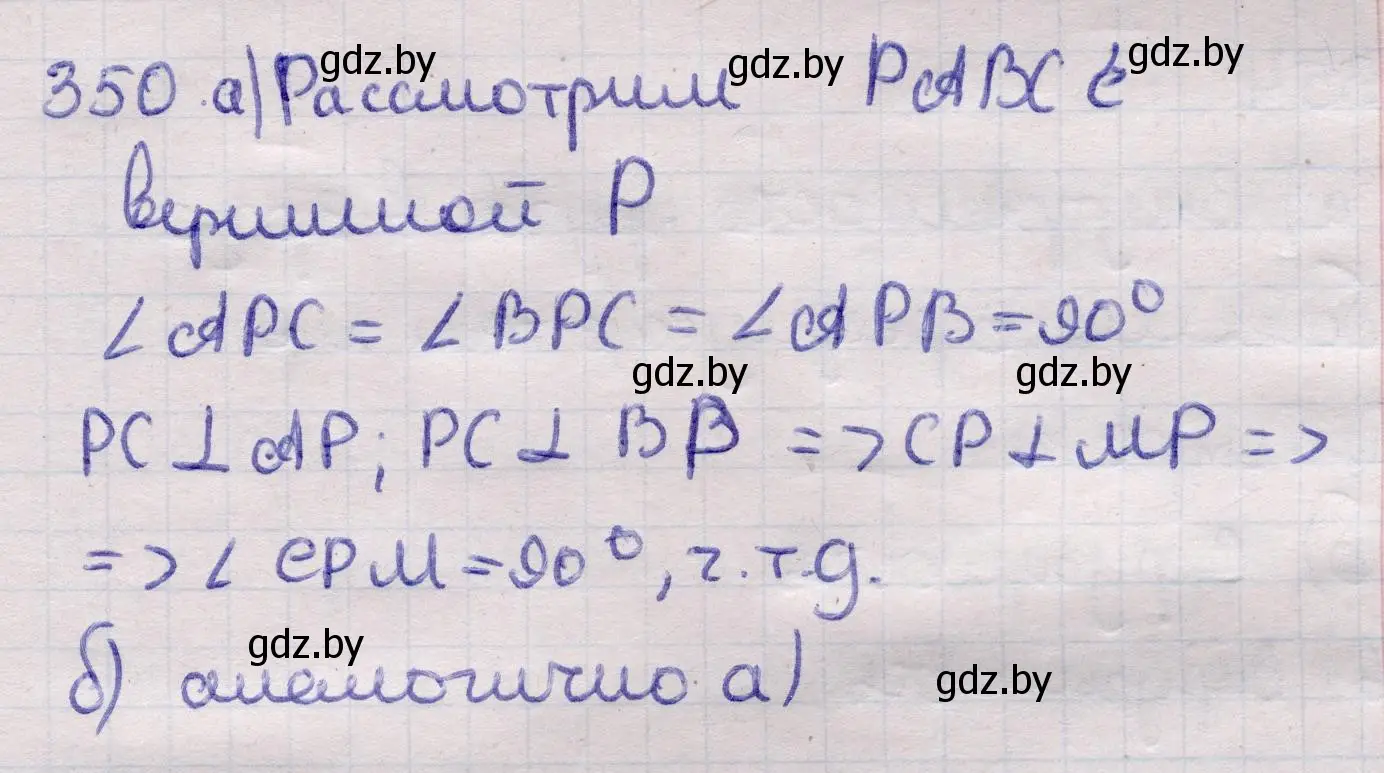 350 а) Рассмотрим PABC с
вершиной P
∠APC = ∠BPC = ∠APB = 90°
PC ⊥ AP; PC ⊥ BP => CP ⊥ MP =>
=> ∠CPM = 90°, ч.т.д.
б) аналогично а)
gdz.by
gdz.by
gdz.by
gdz.by
gdz.by
gdz.by
gdz.by